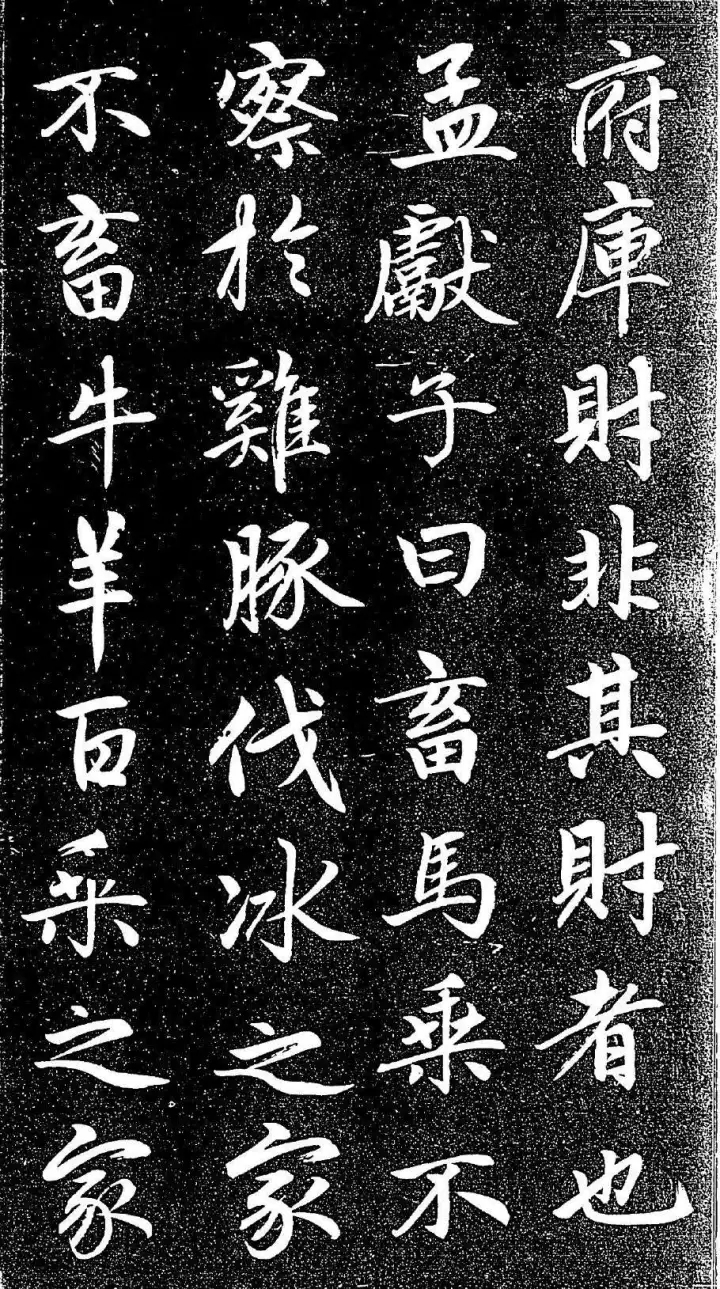 府庫財非其財者也
孟獻子曰畜馬乘不
察於雞豚伐冰之家
不畜牛羊百乘之家